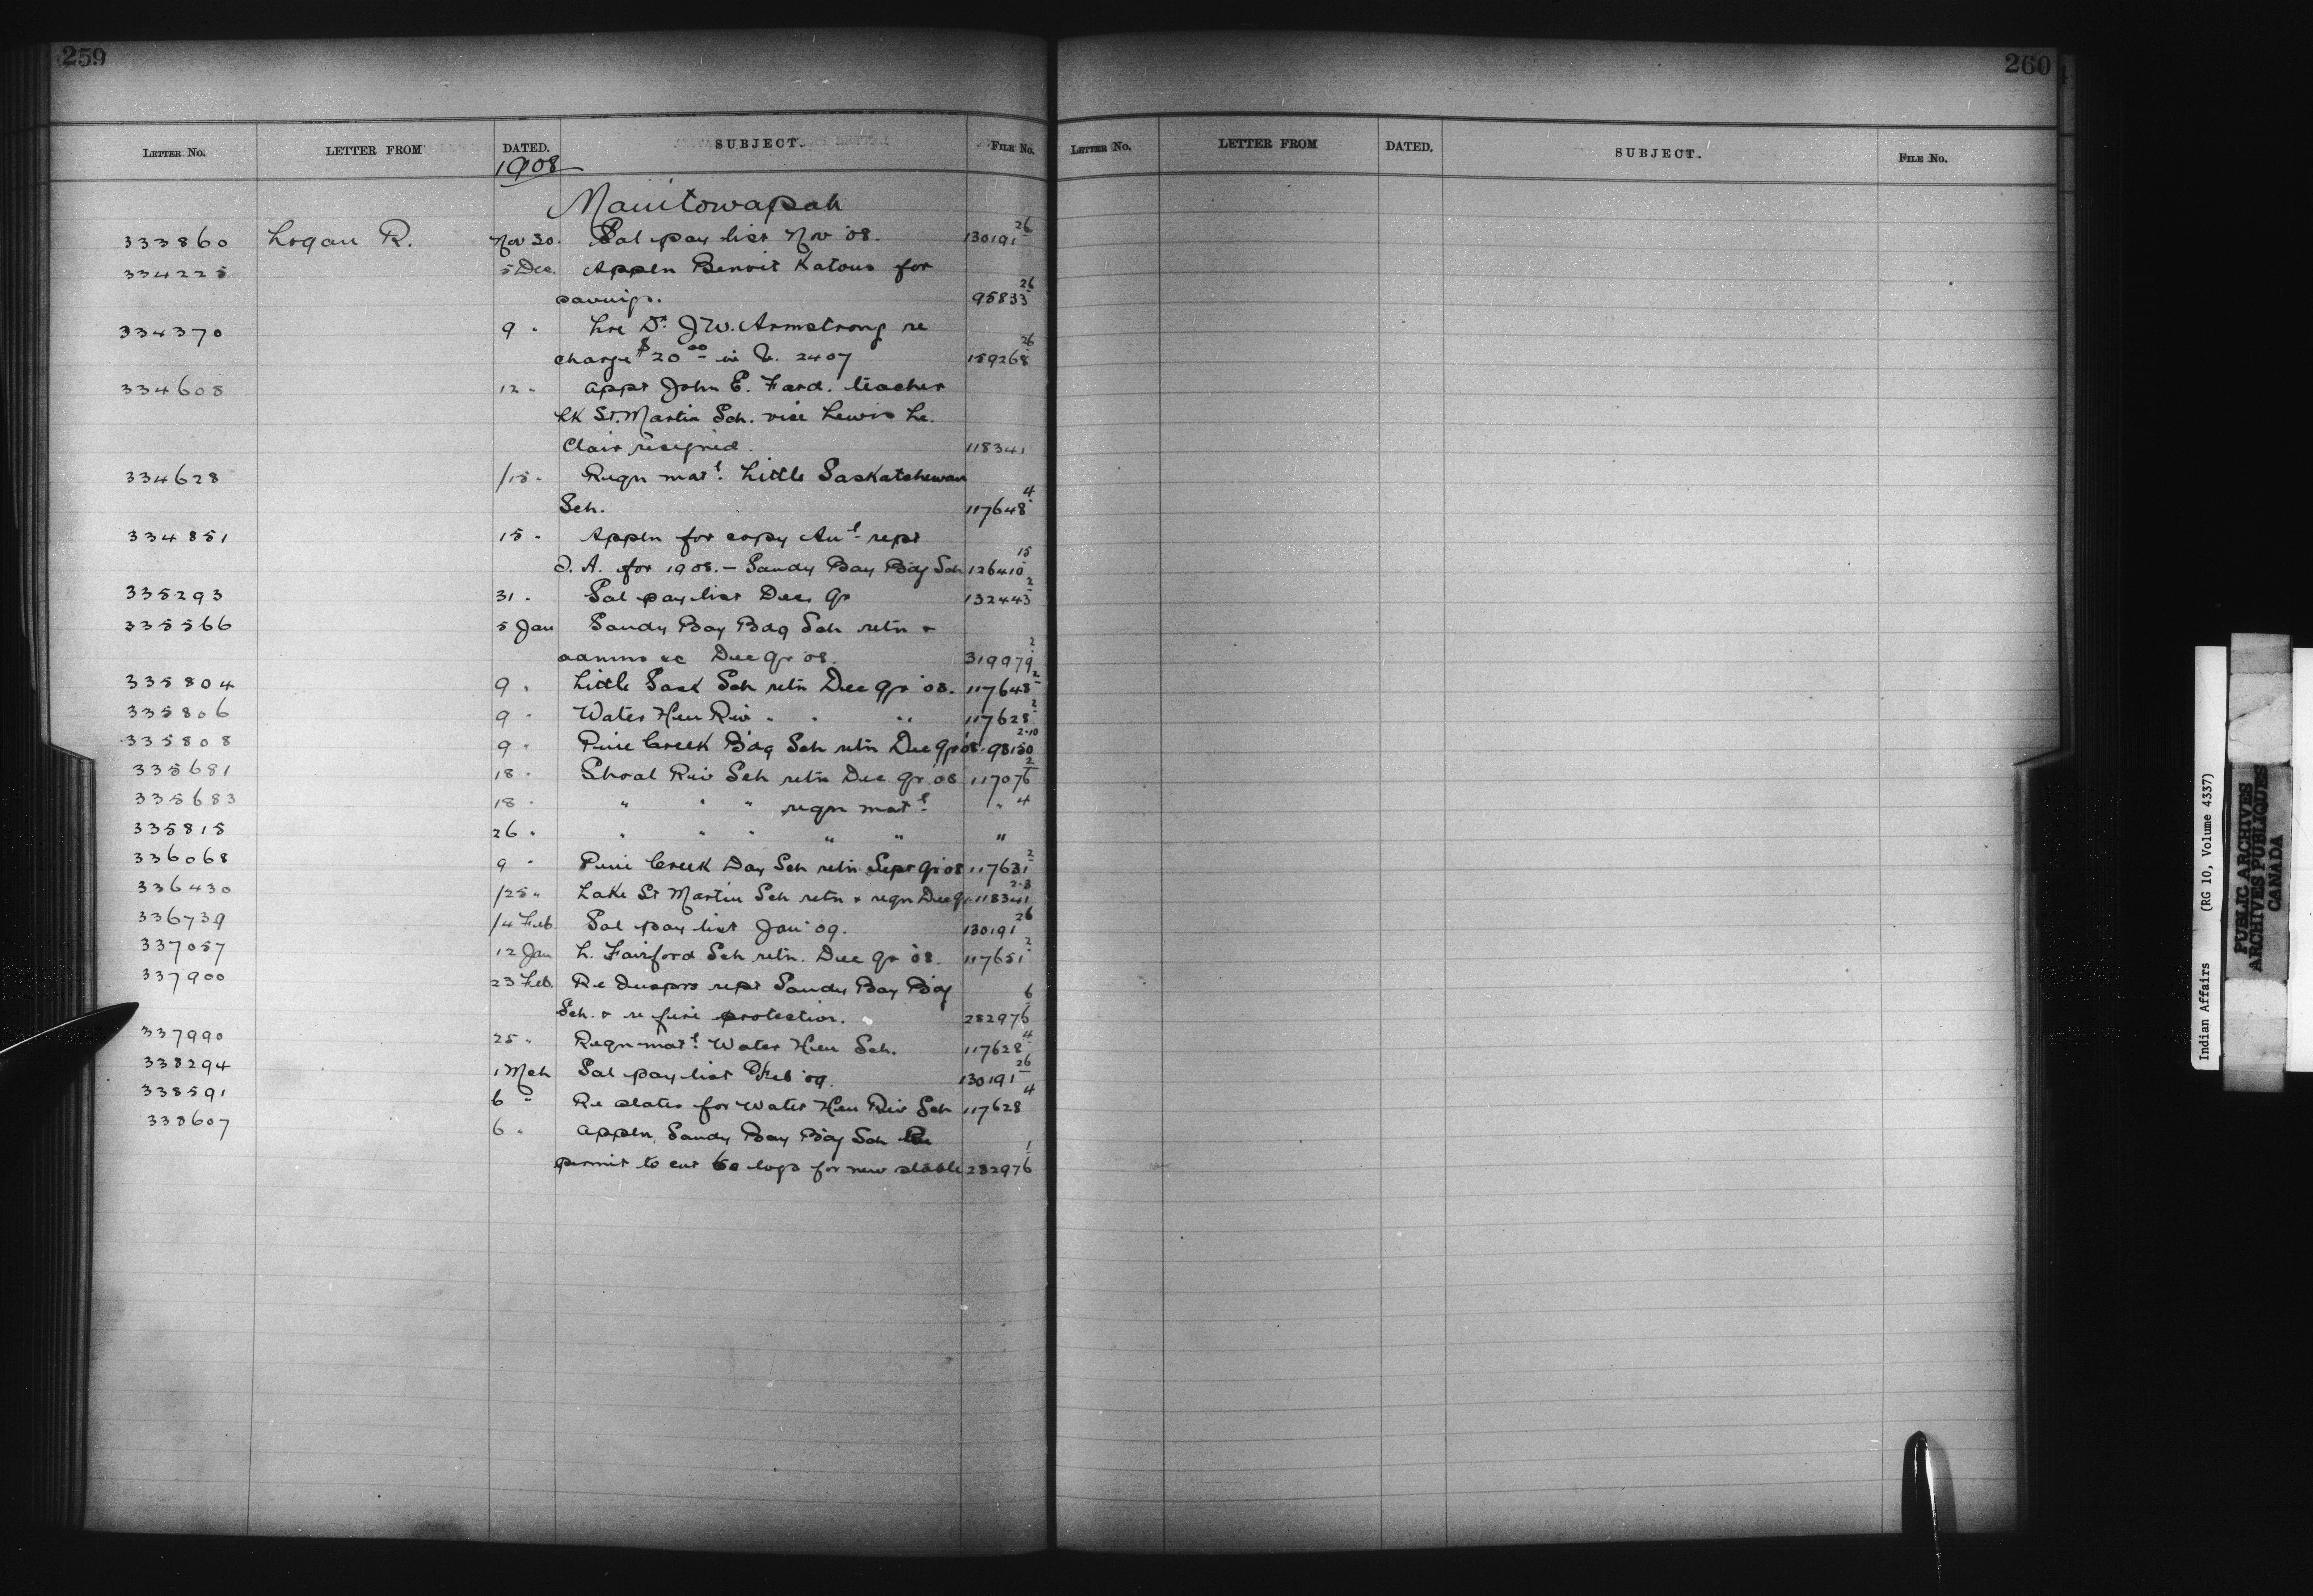 259
260
LETTER No. LETTER FROM DATED. SUBJECT. FILE No.
LETTER No. LETTER FROM DATED. SUBJECT. FILE No.
1908
Manitowapah
333860 Logan R. Nov 30. Sal pay list Nov '08. 130191 26
334225 5 Dec. Appln Benoit Katous for
26
savings. 95833
334370 9 " Lre Dr. J.W. Armstrong re
26
charge $20 00 in V. 2407 159268
334608 12 " appt John E. Favel. teacher
Lk St. Martin Sch. vice Lewis Le.
Clair resigned 118341
334628 /15 " Reqn matl. Little Saskatchewan
4
Sch. 117648
334851 15 " Appln for copy Anl rept
15
D. A. for 1908. – Sandy Bay Bdg Sch 126410
335293 31 " Sal pay list Dec qr 132443 2
335566 5 Jan Sandy Bay Bdg Sch retn &
2
admns &c Dec qr '08. 319979
335804 9 " Little Sask Sch retn Dec qr '08. 117648 2
335806 9 " Water Hen Riv " " " 117628 2
335808 9 " Pine Creek Bdg Sch retn Dec qr '08. 98150 2-10
335681 18 " Shoal Riv Sch retn Dec qr 08 117076 2
335683 18 " " " " reqn matl " 4
335815 26 " " " " " " "
336068 9 " Pine Creek Day Sch retn Sept qr 08 117631 2
336430 /25 " Lake St Martin Sch retn & reqn Dec qr 118341 2-3
336739 /4 Feb. Sal pay list Jan '09. 130191 26
337057 12 Jan L. Fairford Sch retn. Dec qr '08. 117651 2
337900 23 Feb. Re Insprs rept Sandy Bay Bdg
6
Sch. & re fire protection. 282976
337990 25 " Reqn matl. Water Hen Sch. 117628 4
338294 1 Mch Sal pay list Feb '09. 130191 26
338591 6 " Re slates for Water Hen Riv Sch 117628 4
338607 6 " appln. Sandy Bay Bdg Sch
1
permit to cut 60 logs for new stable 282976
Indian Affairs (RG 10, Volume 4337)
PUBLIC ARCHIVES
ARCHIVES PUBLIQUES
CANADA